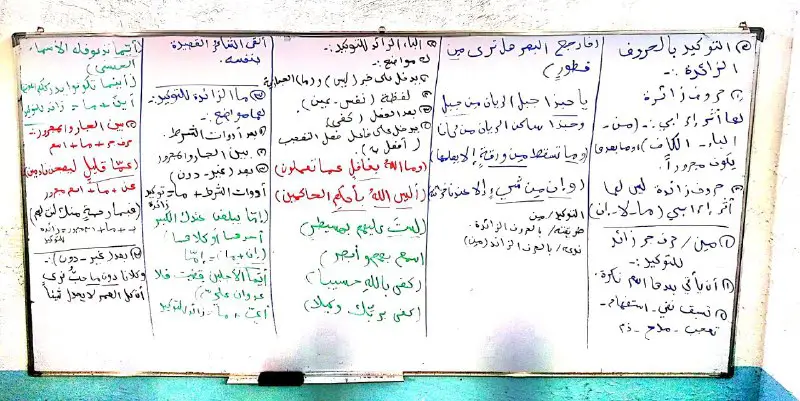 التوكيد بالحروف
الزائدة :-
① حروف زائدة
لها أثر إعرابي :- (من -
الباء - الكاف) وما بعدها
يكون مجروراً
② حروف زائدة: ليس لها
أثر إعرابي (ما - لا - إن)
① مِن / حرف جر زائد
للتوكيد :-
① أن يأتي بعدها اسم نكرة.
② تسبق نفي - استفهام -
تعجب - مدح - ذم
(فارجع البصر هل ترى من
فطور)
يا حبذا جبل الريان من جبل
وحبذا ساكن الريان من كانا
(وما تسقط من ورقة إلا يعلمها)
(وإن من شيء إلا عندنا خزائنه)
التوكيد / من
طريقته / بالحرف الزائد
نوعه / بالحرف الزائد (من)
② الباء الزائد للتوكيد :-
له مواضع :-
① يدخل على خبر (ليس) و(ما)
② لفظة (نفس - عين)
③ بعد الفعل (كفى)
④ يدخل على فاعل فعل التعجب
(أفعل بـ)
(وما الله بغافل عما تعملون)
(أليس الله بأحكم الحاكمين)
(لست عليهم بمسيطر)
أسمع بهم وأبصر
(كفى بالله حسيباً)
(كفى بربك وكيلا)
ألقى الشاعر القصيدة
بنفسه.
③ ما الزائدة للتوكيد:-
لها مواضع:-
① بعد أدوات الشرط.
② بين الجار والمجرور
③ بعد (غير - دون)
أدوات الشرط + ما = توكيد
زائدة
(إما يبلغن عندك الكبر
أحدهما أو كلاهما)
(إن + ما) = إمّا
أيّما الأجلين قضيت فلا
عدوان علي
أي + ما = زائد للتوكيد
(أيّما تدعو فله الأسماء
الحسنى)
(أينما تكونوا يدرككم الموت)
أين + ما = زائد للتوكيد
② بين الجار والمجرور :-
حرف جر + ما + اسم
(عمّا قليلٍ ليصبحن نادمين)
عن + ما + اسم مجرور
(فبما رحمةٍ من الله لنت لهم)
ب + ما + اسم = زائدة
للتوكيد
③ بعد (غير - دون) :-
وكلانا دون ما حبٍ نرى